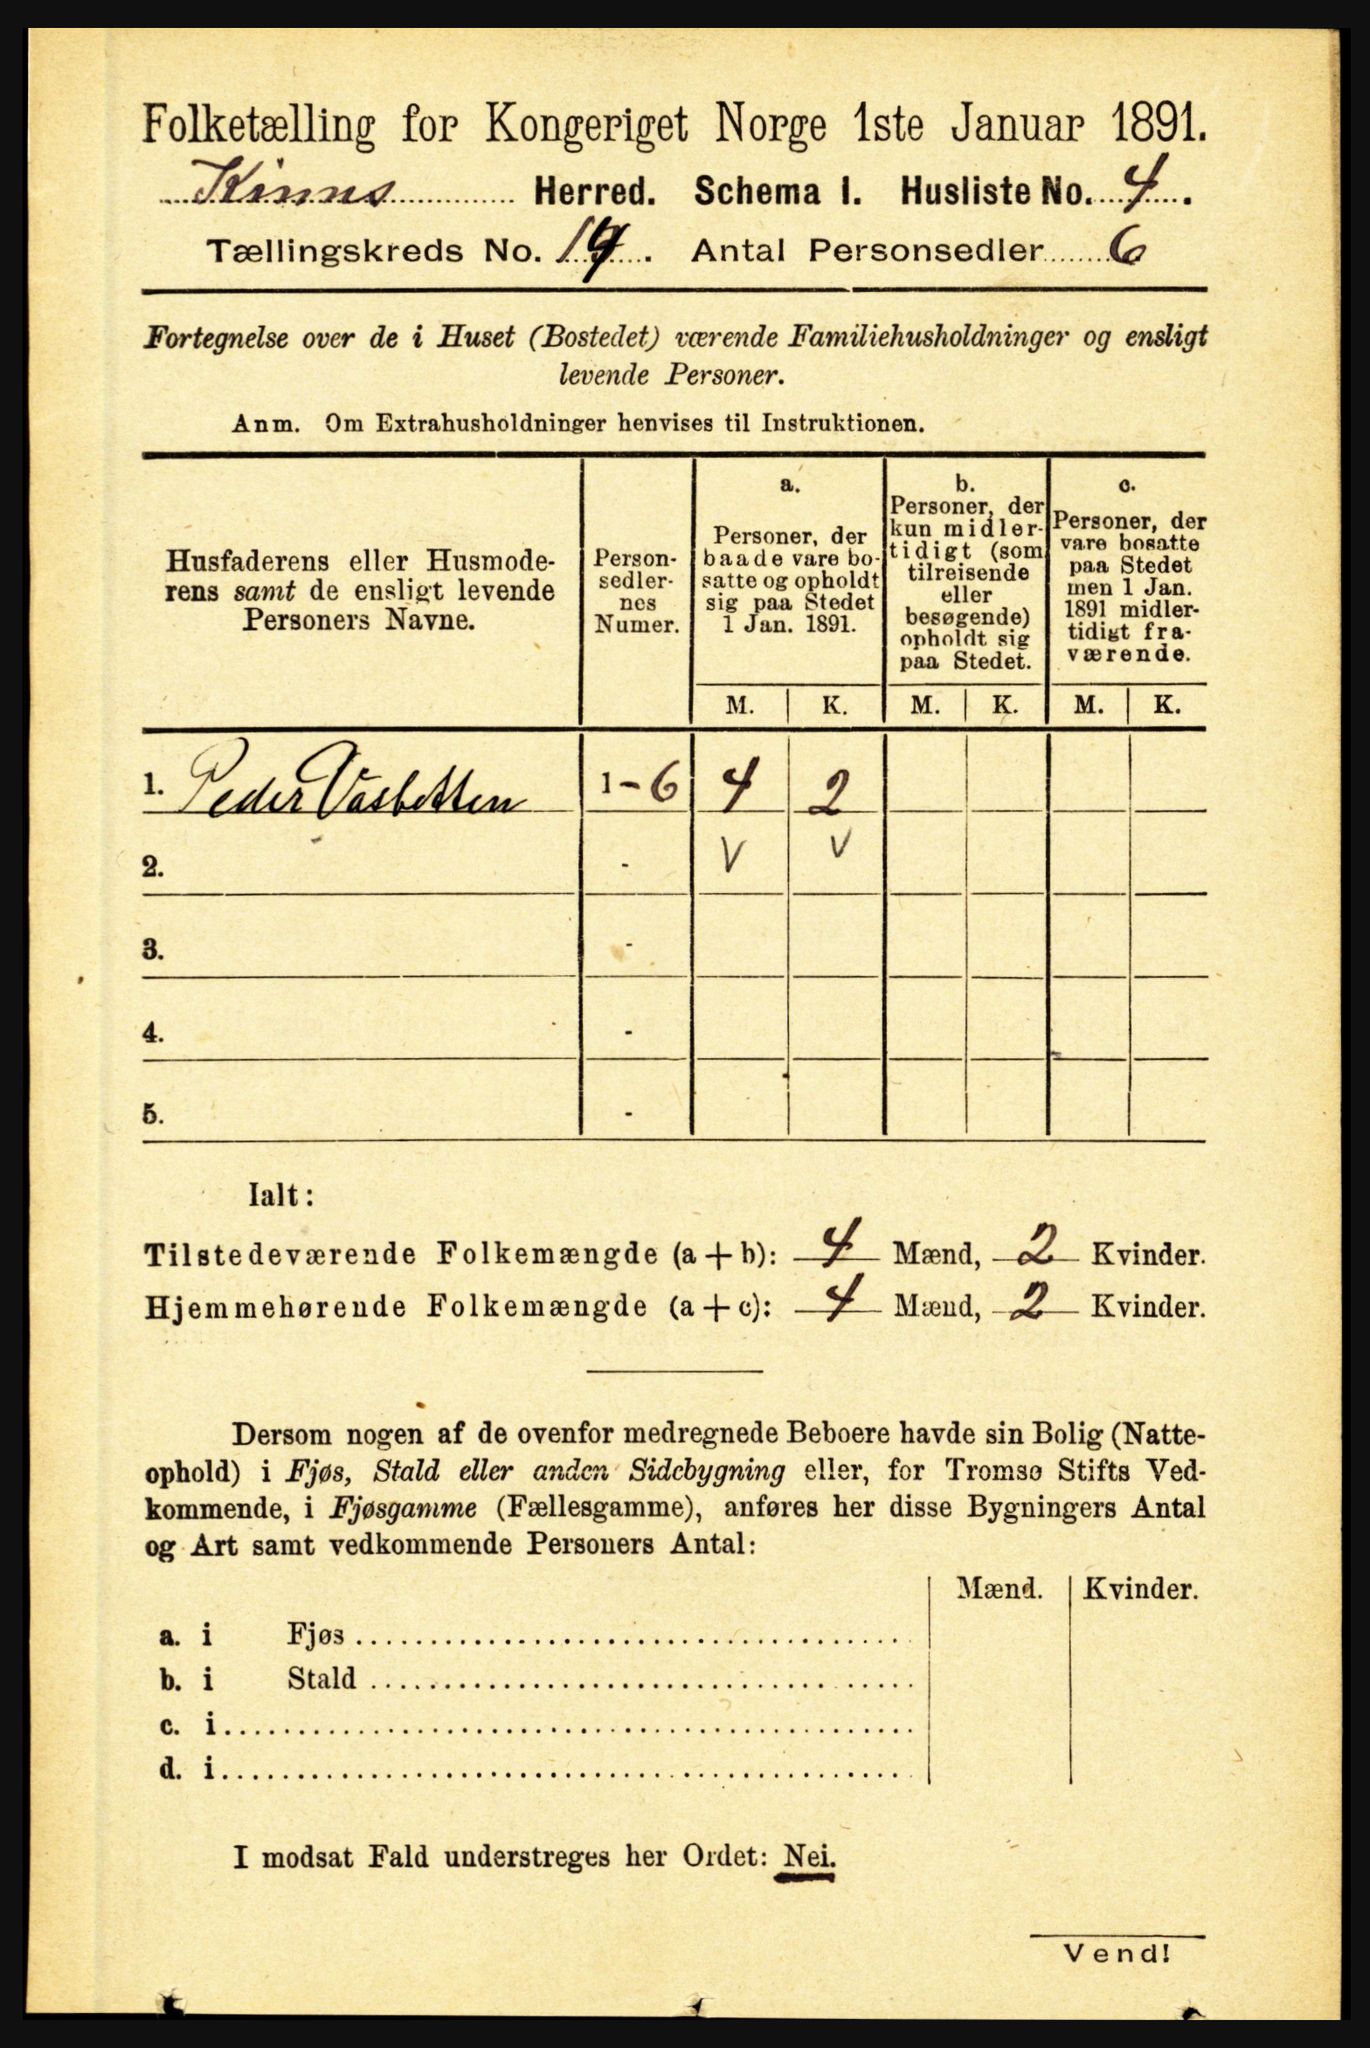 Folketælling for Kongeriget Norge 1ste Januar 1891.
Kinns Herred. Schema I. Husliste No. 4.
Tællingskreds No. 19. Antal Personsedler 6
Fortegnelse over de i Huset (Bostedet) værende Familiehusholdninger og ensligt
levende Personer.
Anm. Om Extrahusholdninger henvises til Instruktionen.
Husfaderens eller Husmode-
rens samt de ensligt levende
Personers Navne.
Person-
sedler-
nes
Numer.
a.
Personer, der
baade vare bo-
satte og opholdt
sig paa Stedet
1 Jan. 1891.
b.
Personer, der
kun midler-
tidigt (som
tilreisende
eller
besøgende)
opholdt sig
paa Stedet.
c.
Personer, der
vare bosatte
paa Stedet
men 1 Jan.
1891 midler-
tidigt fra-
værende.
M. K. M. K. M. K.
1. Peder Vasbotten 1-6 4 2
2. - V V
3. -
4. -
5. -
Ialt:
Tilstedeværende Folkemængde (a+b): 4 Mænd, 2 Kvinder.
Hjemmehørende Folkemængde (a+c): 4 Mænd, 2 Kvinder.
Dersom nogen af de ovenfor medregnede Beboere havde sin Bolig (Natte-
ophold) i Fjøs, Stald eller anden Sidebygning eller, for Tromsø Stifts Ved-
kommende, i Fjøsgamme (Fællesgamme), anføres her disse Bygningers Antal
og Art samt vedkommende Personers Antal:
Mænd. Kvinder.
a. i Fjøs
b. i Stald
c. i
d. i
I modsat Fald understreges her Ordet: Nei.
Vend!